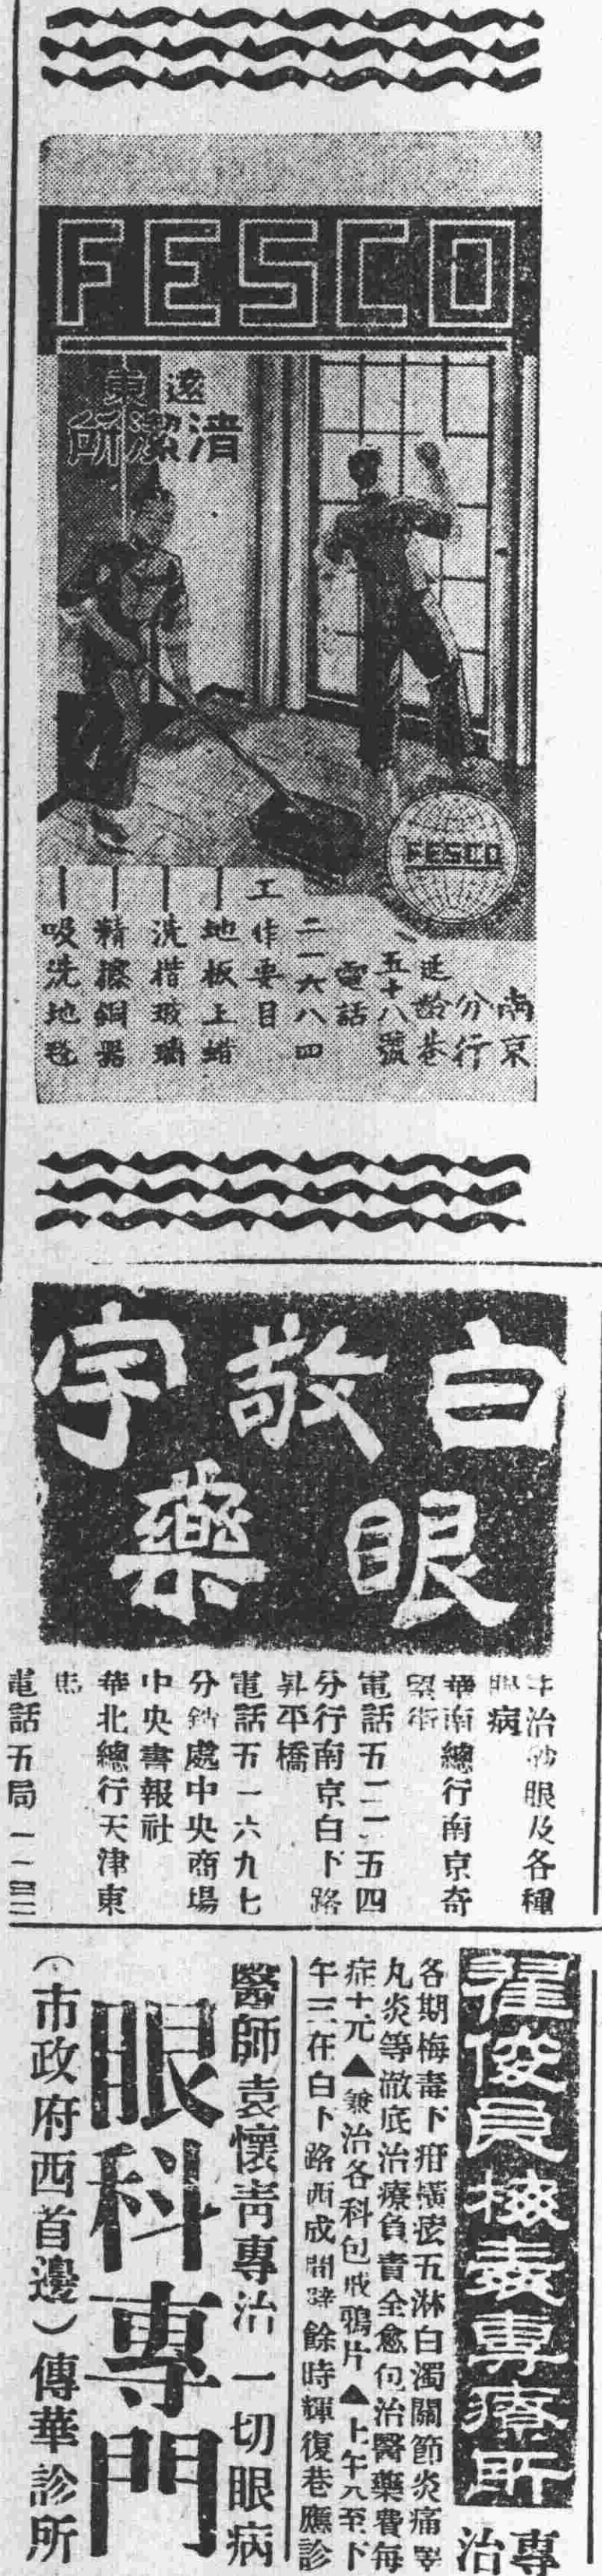 FESCO
遠東
清潔所
FESCO
南京
分行
延齡巷
五十八號
電話
二一六八四
工作要目
地板上蜡
洗揩玻璃
精擦銅器
吸洗地毯
白敬宇
眼藥
專治砂眼及各種
眼病
華南總行南京奇
望街
電話五二一五四
分行南京白下路
昇平橋
電話五一六九七
分銷處中央商場
中央書報社
華北總行天津東
馬
電話五局一一
翟俊良梅毒專療所
專治
各期梅毒下疳橫痃五淋白濁關節炎痛睪
丸炎等澈底治療負責全愈包治醫藥費每
症十元▲兼治各科包戒鴉片▲上午九至下
午三在白下路西成間壁餘時輝復巷應診
醫師袁懷青專治一切眼病
眼科專門
(市政府西首邊)傳華診所